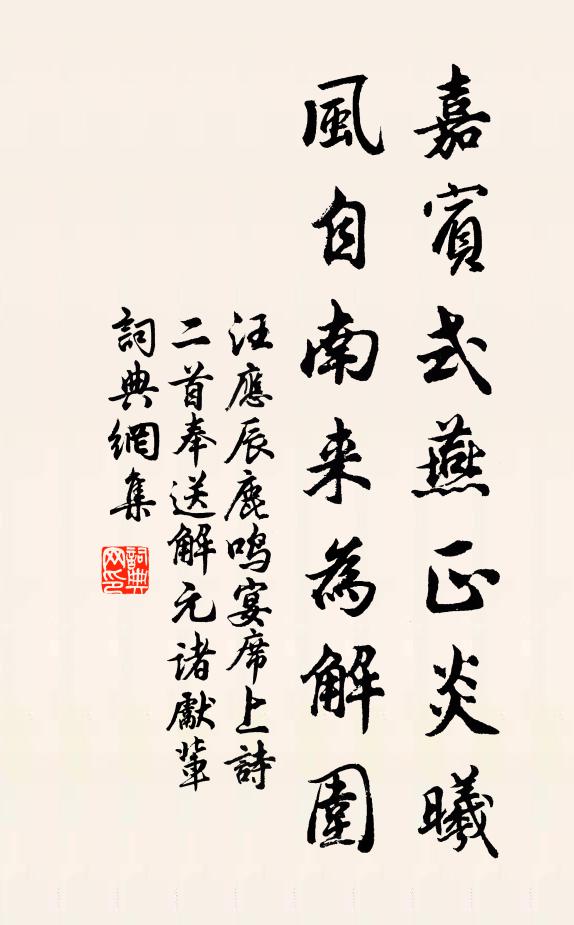 嘉賓式燕正炎曦
風自南来為解圍
汪應辰鹿鳴宴席上詩
二首奉送解元諸獻輩
詞典網集
詞典网印